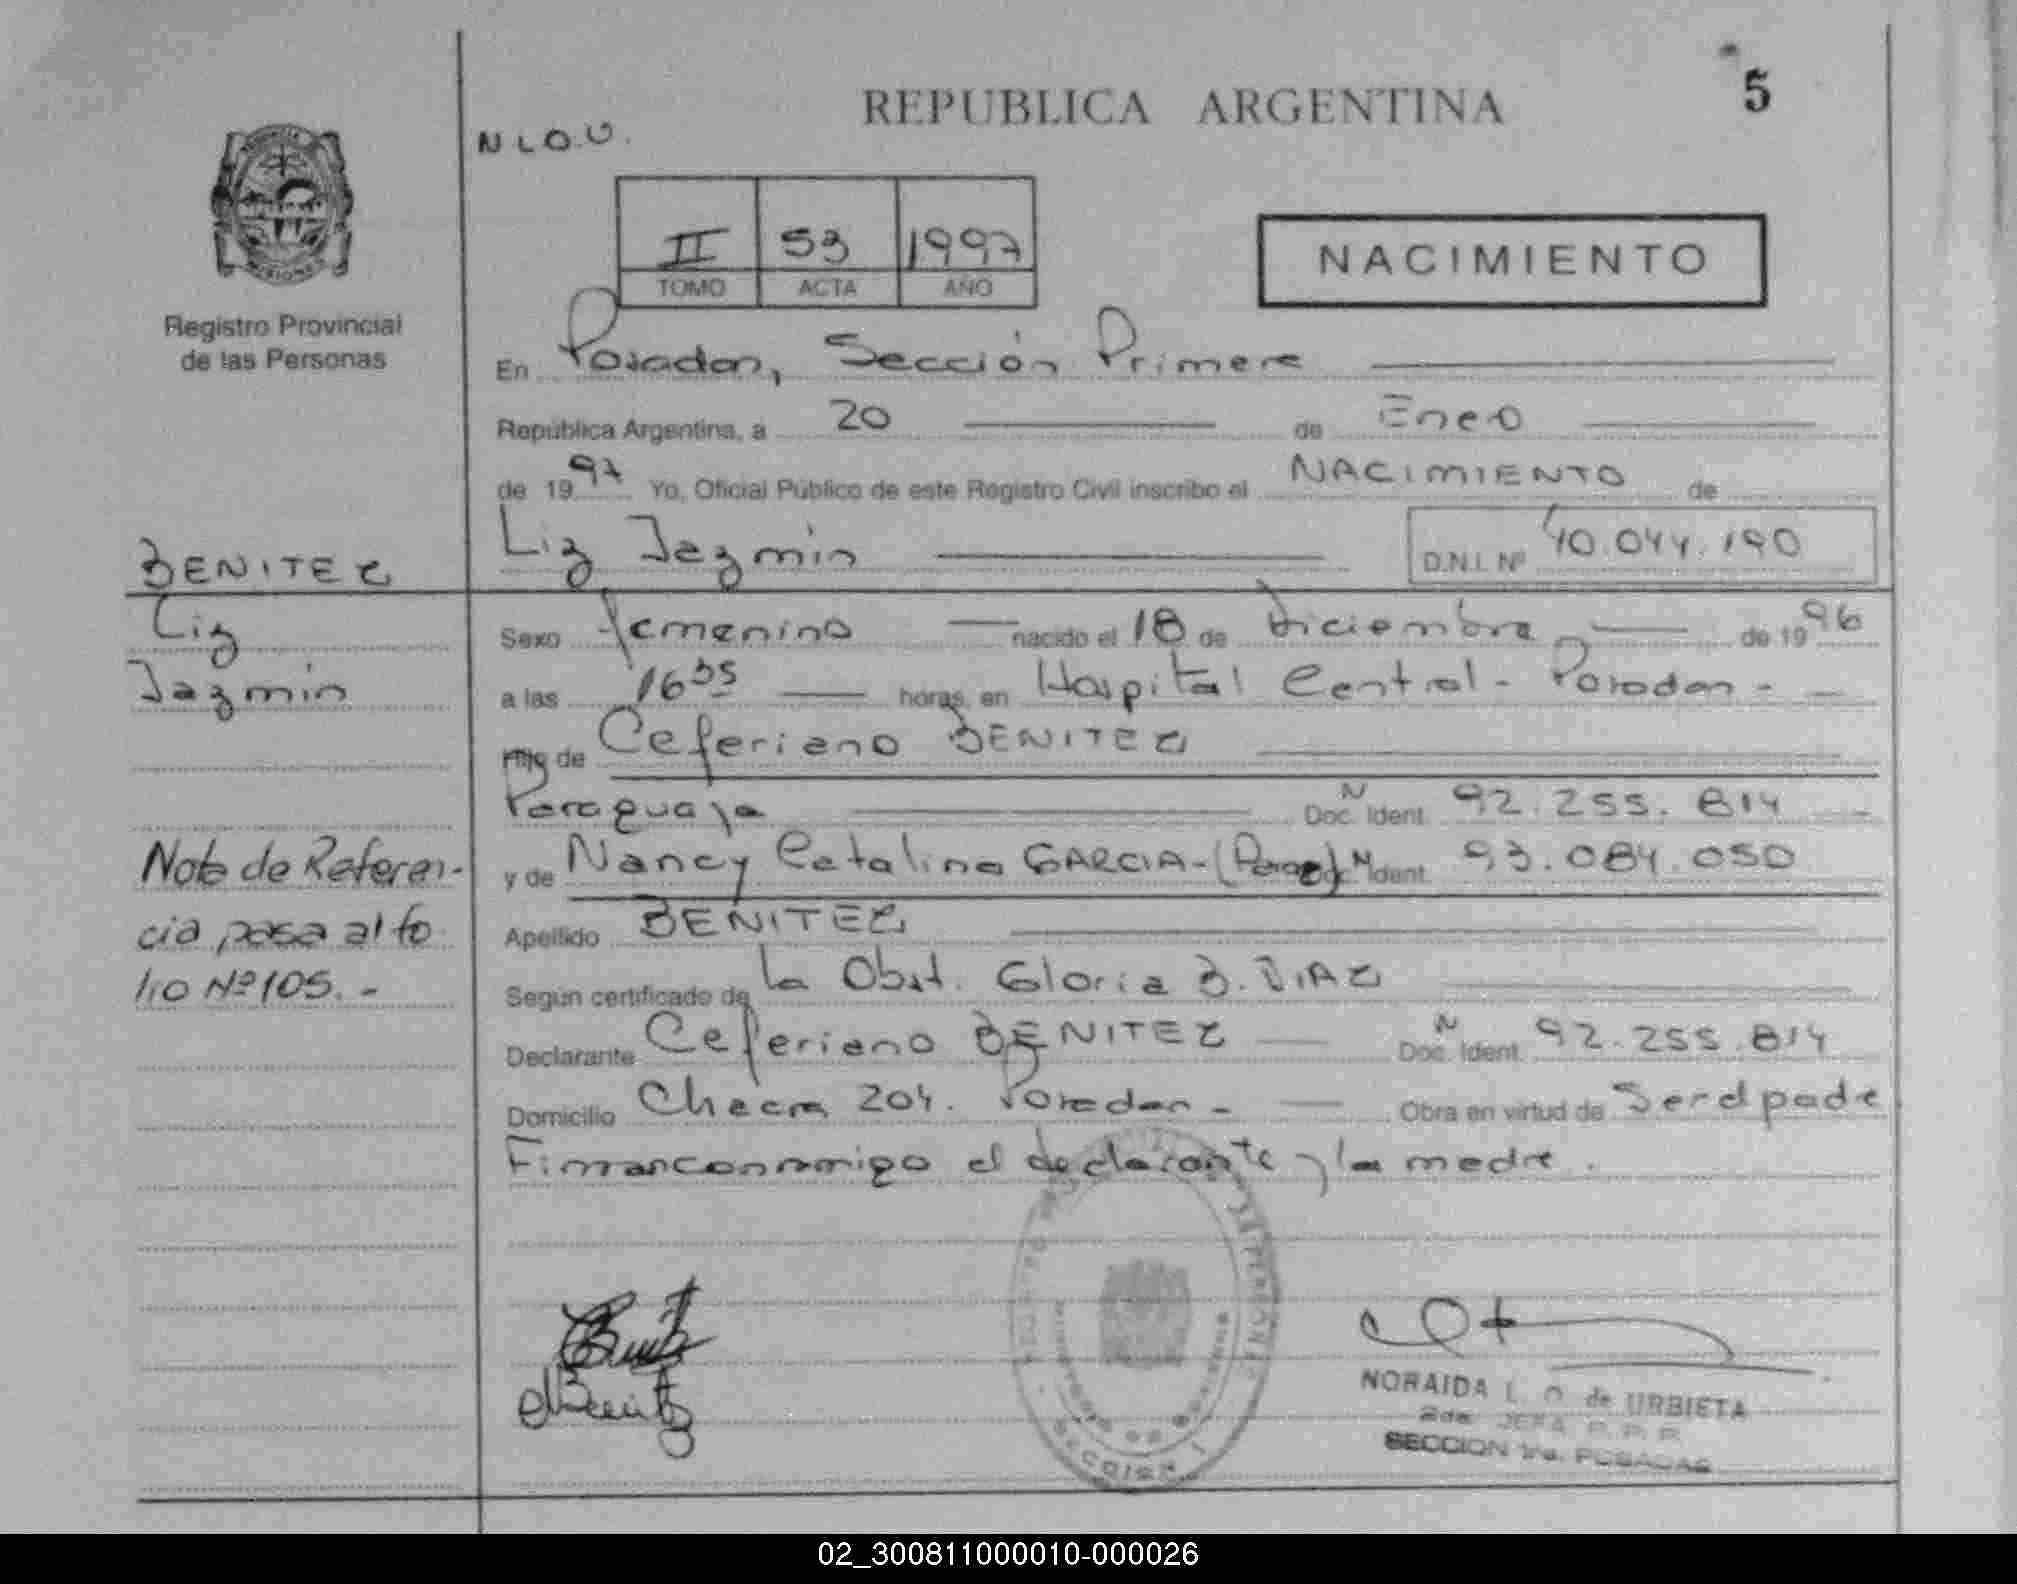 REPUBLICA ARGENTINA
5
N L O. U.
II 53 1997
TOMO ACTA AÑO
NACIMIENTO
Registro Provincial
de las Personas
En Posadas, Sección Primera
República Argentina, a 20 de Enero
de 1997 Yo, Oficial Público de este Registro Civil inscribo el NACIMIENTO de
Liz Jazmin
D.N.I. Nº 40.044.190
BENITEZ
Liz
Jazmin
Sexo femenino nacido el 18 de Diciembre de 1996
a las 16 35 horas, en Hospital Central - Posadas -
Hijo de Ceferiano BENITEZ
Paraguaya Doc. Ident. 92.255.814
y de Nancy Catalina GARCIA - (Parag) Doc. Ident. 93.084.050
Apellido BENITEZ
Según certificado de la Obst. Gloria B. DIAZ
Declarante Ceferiano BENITEZ Doc. Ident. 92.255.814
Domicilio Chacra 204. Posadas - Obra en virtud de Ser el padre
Firman conmigo el declarante y la madre.
Nota de Referen-
cia pasa al fo
lio Nº 105. -
NORAIDA L. O. de URBIETA
2da. JEFA R. P. P.
SECCION 1ra. POSADAS
02_300811000010-000026